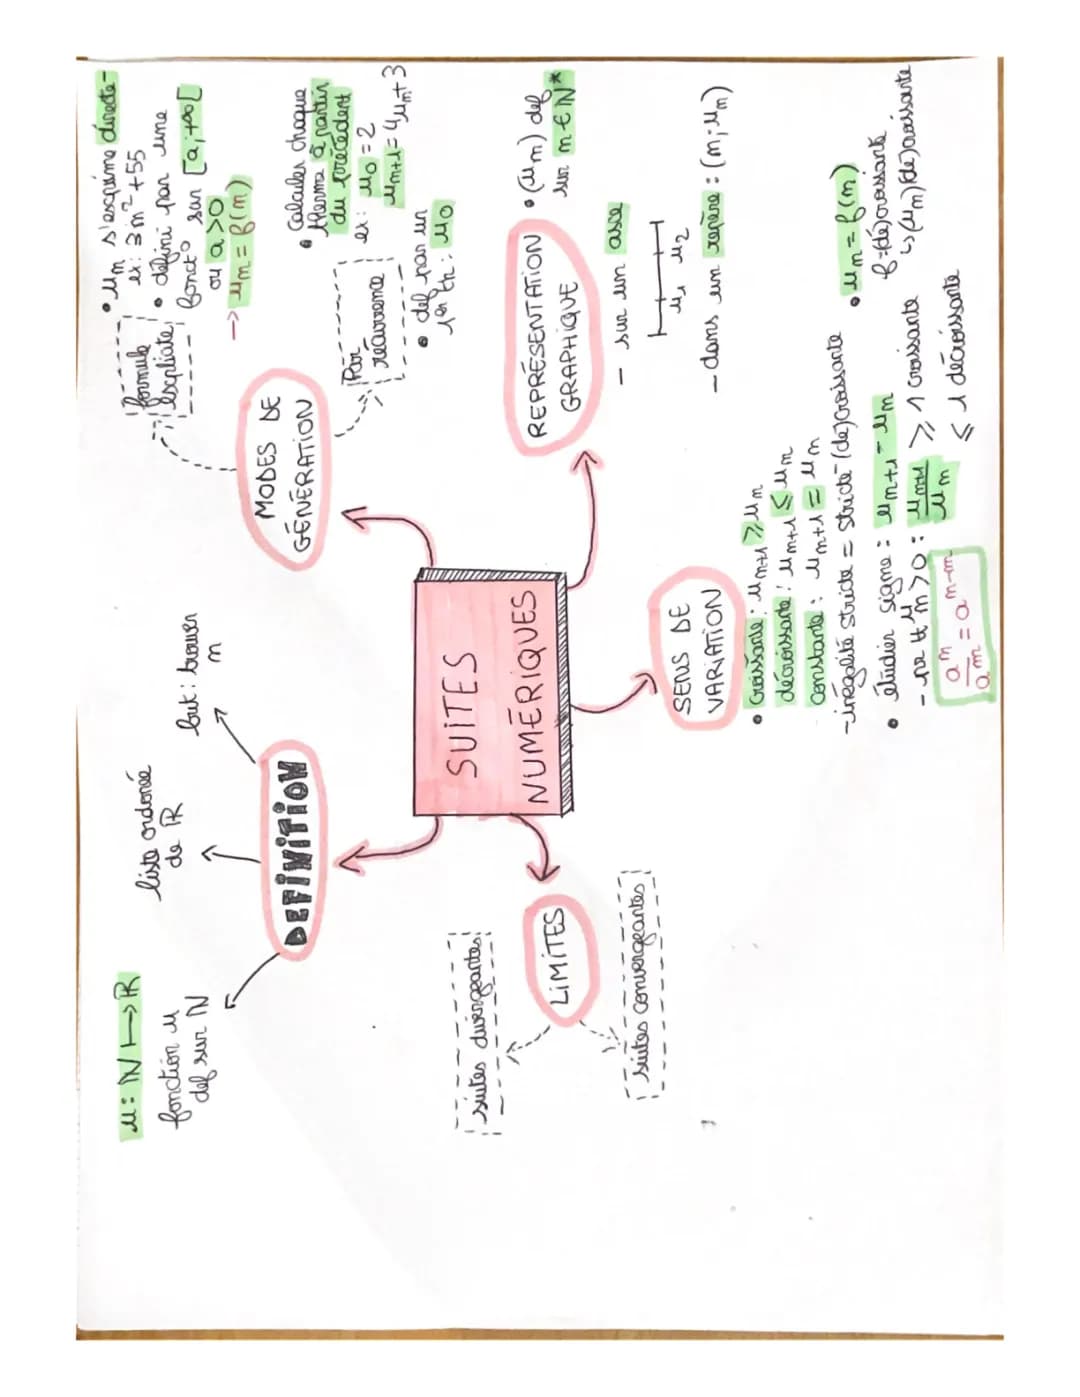 SUITES
NUMÉRIQUES
DEFINITION
u : ℕ ⟼ ℝ
fonction u
def sur ℕ
liste ordonée
de ℝ
but : trouver
n
MODES DE
GÉNÉRATION
formule
explicite
• un s'exprime directe-
ex : 3n² + 55
• défini par une
fonct° sur [a ; +∞[
où a > 0
→ un = f(n)
Par
récurrence
• Calculer chaque
terme à partir
du précédent
ex : u0 = 2
un+1 = 4un + 3
• def par un
1er th : u0
REPRÉSENTATION
GRAPHIQUE
• (un) def
sur n ∈ ℕ*
- sur un axe
u1 u2
- dans un repère : (n ; un)
SENS DE
VARIATION
• Croissante : un+1 ⩾ un
décroissante : un+1 ⩽ un
constante : un+1 = un
- inégalité stricte = stricte (de)croissante
• étudier signe : un+1 - un
- un > 0 : un+1/un ⩾ 1 croissante
⩽ 1 décroissante
aⁿ/aᵐ = aⁿ⁻ᵐ
• un = f(n)
f (dé)croissante
↳ (un) (de)croissante
LIMITES
suites divergeantes
suites convergeantes